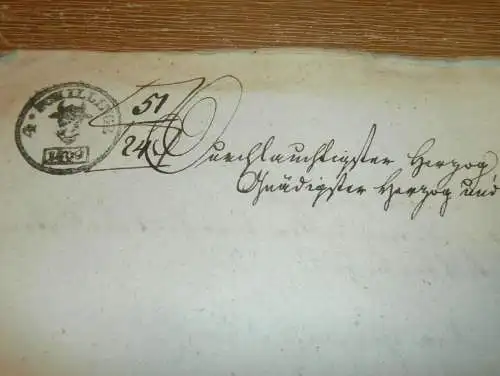 4 · SCHILLING
51
24
Durchlauchtigster Herzog
Gnädigster Herzog und